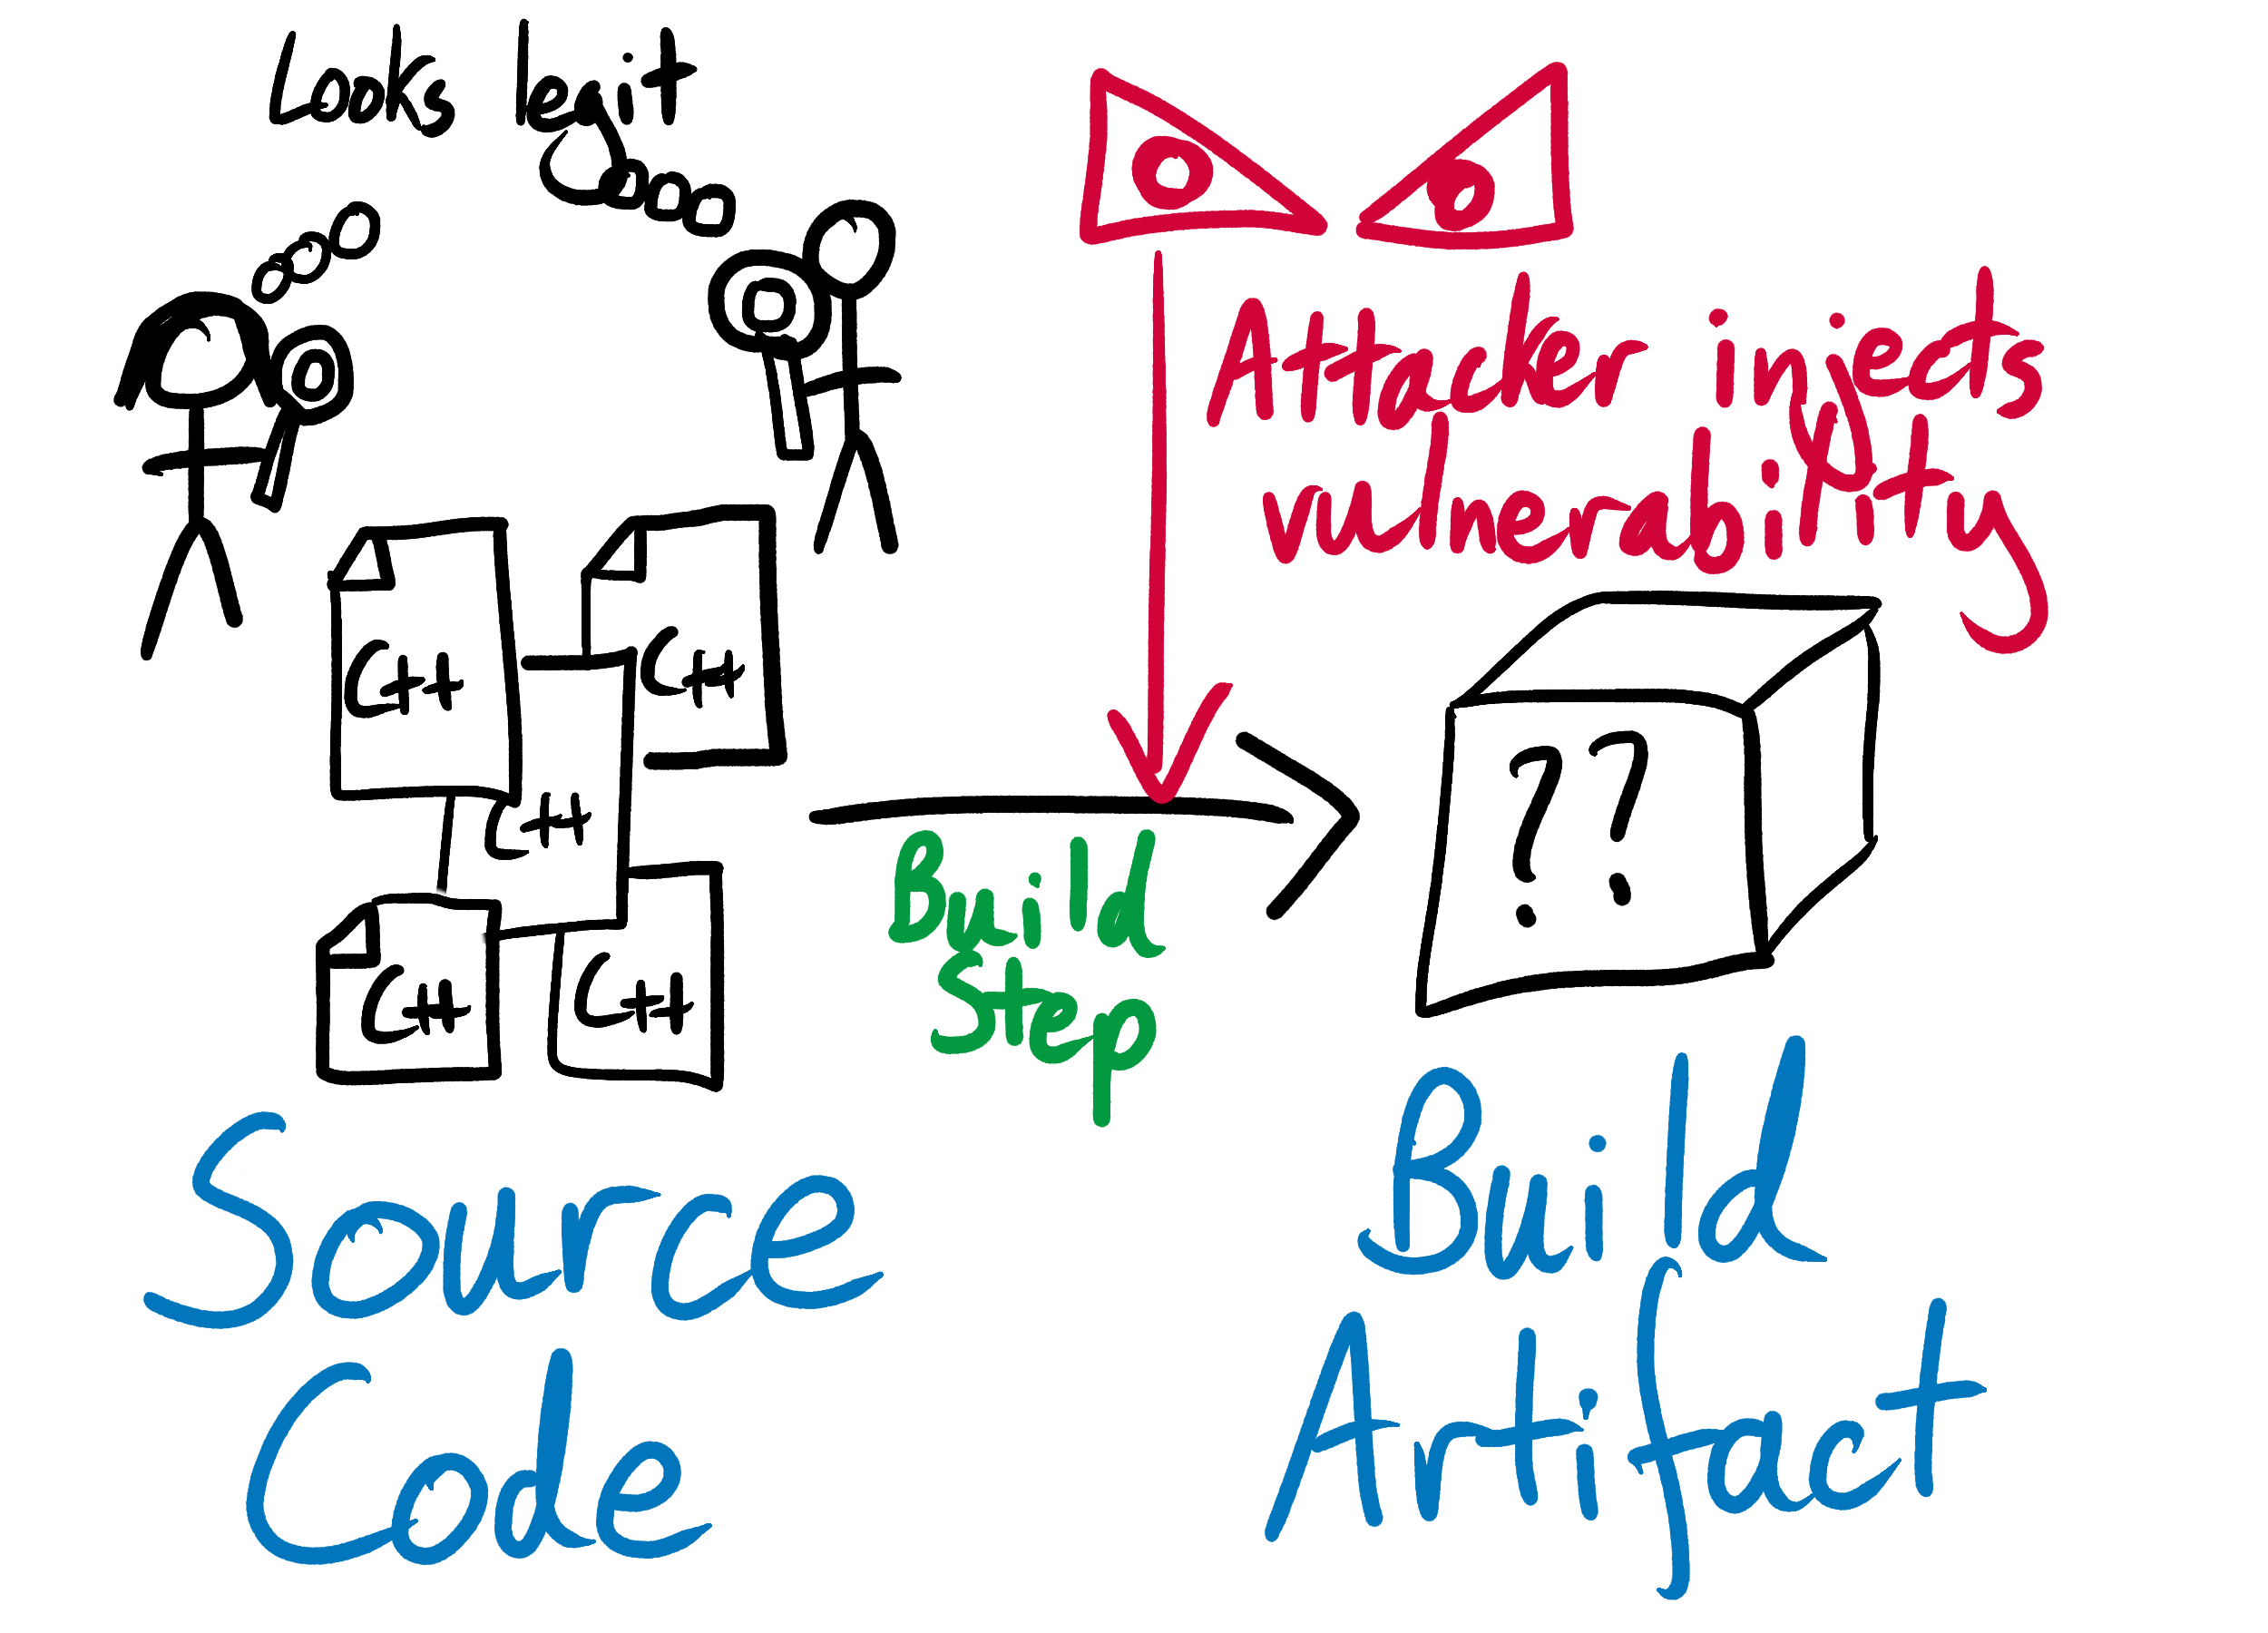 Looks legit
Attacker injects
vulnerability
C++
C++
C++
C++
C++
??
Build
Step
Source
Code
Build
Artifact